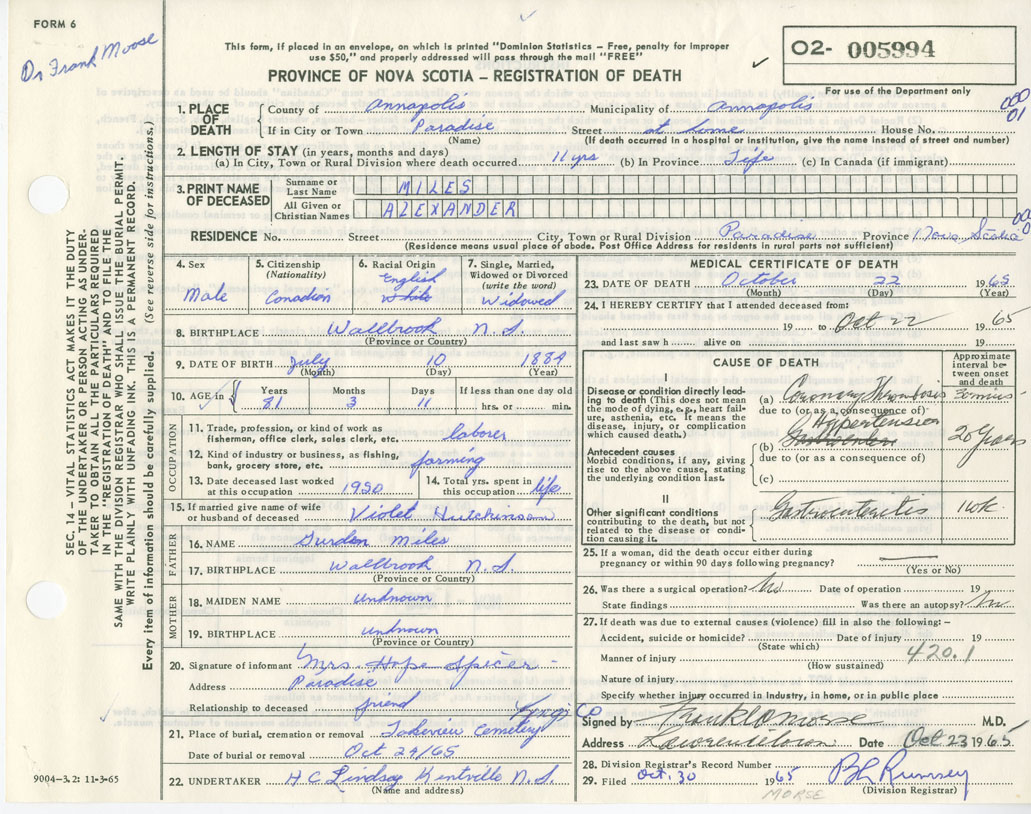 FORM 6
Dr Frank Moose
This form, if placed in an envelope, on which is printed "Dominion Statistics – Free, penalty for improper
use $50," and properly addressed will pass through the mail "FREE"
PROVINCE OF NOVA SCOTIA – REGISTRATION OF DEATH
02- 005994
For use of the Department only
SEC. 14 – VITAL STATISTICS ACT MAKES IT THE DUTY
OF THE UNDERTAKER OR PERSON ACTING AS UNDER-
TAKER TO OBTAIN ALL THE PARTICULARS REQUIRED
IN THE "REGISTRATION OF DEATH" AND TO FILE THE
SAME WITH THE DIVISION REGISTRAR WHO SHALL ISSUE THE BURIAL PERMIT.
WRITE PLAINLY WITH UNFADING INK. THIS IS A PERMANENT RECORD.
Every item of information should be carefully supplied. (See reverse side for instructions.)
1. PLACE OF DEATH
County of Annapolis Municipality of Annapolis
If in City or Town Paradise Street at home House No.
(Name) (If death occurred in a hospital or institution, give the name instead of street and number)
2. LENGTH OF STAY (in years, months and days)
(a) In City, Town or Rural Division where death occurred 11 yrs (b) In Province Life (c) In Canada (if immigrant)
3. PRINT NAME OF DECEASED
Surname or Last Name MILES
All Given or Christian Names ALEXANDER
RESIDENCE No. Street City, Town or Rural Division Paradise Province Nova Scotia
(Residence means usual place of abode. Post Office Address for residents in rural parts not sufficient)
4. Sex Male
5. Citizenship (Nationality) Canadian
6. Racial Origin English White
7. Single, Married, Widowed or Divorced (write the word) Widowed
8. BIRTHPLACE Wallbrook N.S.
(Province or Country)
9. DATE OF BIRTH July 10 1884
(Month) (Day) (Year)
10. AGE in Years 81 Months 3 Days 11 If less than one day old hrs. or min.
OCCUPATION
11. Trade, profession, or kind of work as fisherman, office clerk, sales clerk, etc. laborer
12. Kind of industry or business, as fishing, bank, grocery store, etc. farming
13. Date deceased last worked at this occupation 1950
14. Total yrs. spent in this occupation life
15. If married give name of wife or husband of deceased Violet Hutchinson
FATHER
16. NAME Gurdon Miles
17. BIRTHPLACE Wallbrook N.S.
(Province or Country)
MOTHER
18. MAIDEN NAME Unknown
19. BIRTHPLACE unknown
(Province or Country)
20. Signature of informant Mrs. Hope Spicer
Address Paradise
Relationship to deceased friend
Kings Co
21. Place of burial, cremation or removal Lakeview Cemetery
Date of burial or removal Oct 24/65
22. UNDERTAKER H C Lindsay Kentville N.S.
(Name and address)
9004-3.2: 11-3-65
MEDICAL CERTIFICATE OF DEATH
23. DATE OF DEATH October 22 1965
(Month) (Day) (Year)
24. I HEREBY CERTIFY that I attended deceased from:
19 to Oct 22 1965
and last saw h alive on 19
CAUSE OF DEATH
Approximate interval between onset and death
I
Disease or condition directly leading to death (This does not mean the mode of dying, e.g., heart failure, asthenia, etc. It means the disease, injury, or complication which caused death.)
(a) Coronary Thrombosis 30 mins
due to (or as a consequence of)
Hypertension
Antecedent causes
Morbid conditions, if any, giving rise to the above cause, stating the underlying condition last.
(b) Gastroenteri 20 Years
due to (or as a consequence of)
(c)
II
Other significant conditions contributing to the death, but not related to the disease or condition causing it.
Gastroenteritis 1 wk.
25. If a woman, did the death occur either during pregnancy or within 90 days following pregnancy?
(Yes or No)
26. Was there a surgical operation? No Date of operation 19
State findings Was there an autopsy? No
27. If death was due to external causes (violence) fill in also the following:–
Accident, suicide or homicide? Date of injury 19
(State which)
Manner of injury 420.1
(How sustained)
Nature of injury
Specify whether injury occurred in industry, in home, or in public place
Signed by Frank O Morse M.D.
Address Lawrencetown Date Oct 23 1965
28. Division Registrar's Record Number
29. Filed Oct. 30 1965 B L Rumsey
(Division Registrar)
MORSE